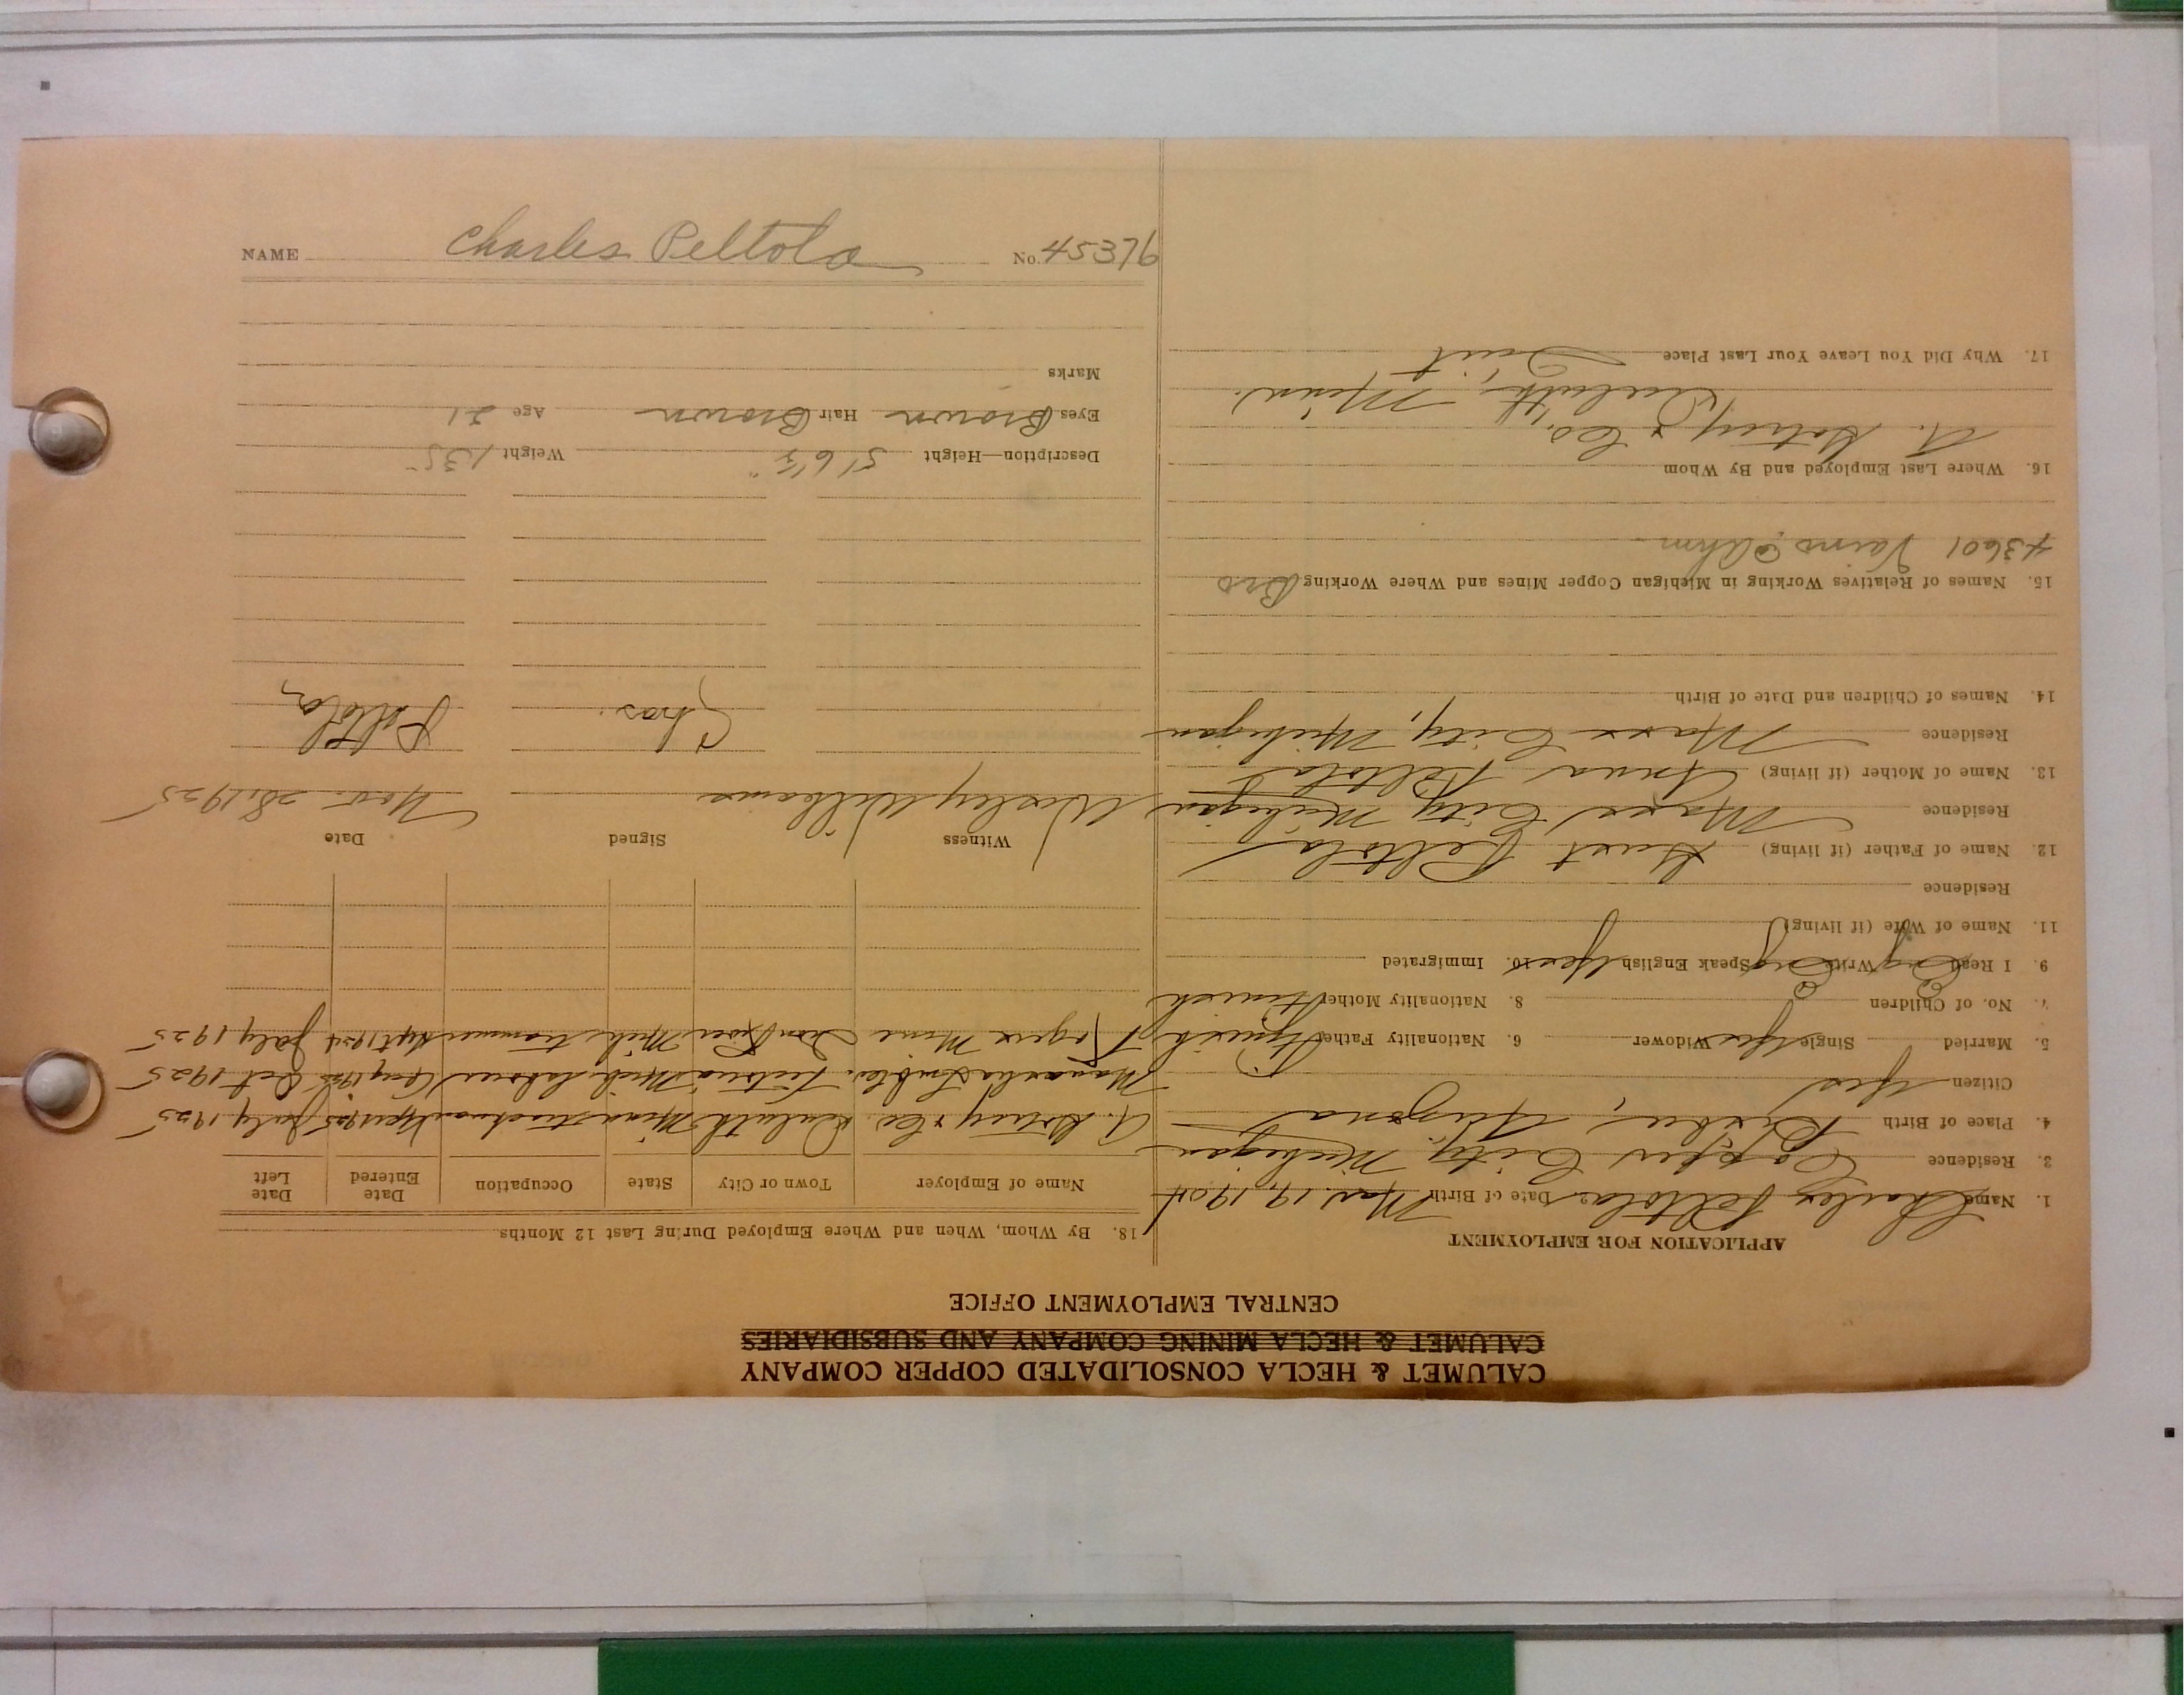 CALUMET & HECLA CONSOLIDATED COPPER COMPANY
CALUMET & HECLA MINING COMPANY AND SUBSIDIARIES
CENTRAL EMPLOYMENT OFFICE
APPLICATION FOR EMPLOYMENT
1. Name Charles Peltola 2 Date of Birth Nov. 19, 1904
3. Residence Copper City, Michigan
4. Place of Birth Bisbee, Arizona
Citizen Yes
5. Married Single Yes Widower 6. Nationality Father Finnish
7. No. of Children 8. Nationality Mother Finnish
9. I Read Eng Write Eng Speak English Yes 10. Immigrated
11. Name of Wife (if living)
Residence
12. Name of Father (if living) Gust Peltola
Residence Mass City Michigan
13. Name of Mother (if living) Anna Peltola
Residence Mass City, Michigan
14. Names of Children and Date of Birth
15. Names of Relatives Working in Michigan Copper Mines and Where Working Bro
43601 Vaino Ahm
16. Where Last Employed and By Whom
A. & Co.,
Duluth, Minn.
17. Why Did You Leave Your Last Place Quit
18. By Whom, When and Where Employed During Last 12 Months
Name of Employer Town or City State Occupation Date Entered Date Left
A. & Co. Duluth Minn trackman 1925 July 1925
Lumber Co. Victoria Mich. laborer Aug 1925 Oct 1925
Rogers Mine Iron River Mich. trammer Sept 1924 July 1925
Witness Signed Date
Wesley Williams Nov. 28, 1925
Chas. Peltola
Description—Height 5' 6½" Weight 135
Eyes Brown Hair Brown Age 21
Marks
NAME Charles Peltola No. 45376